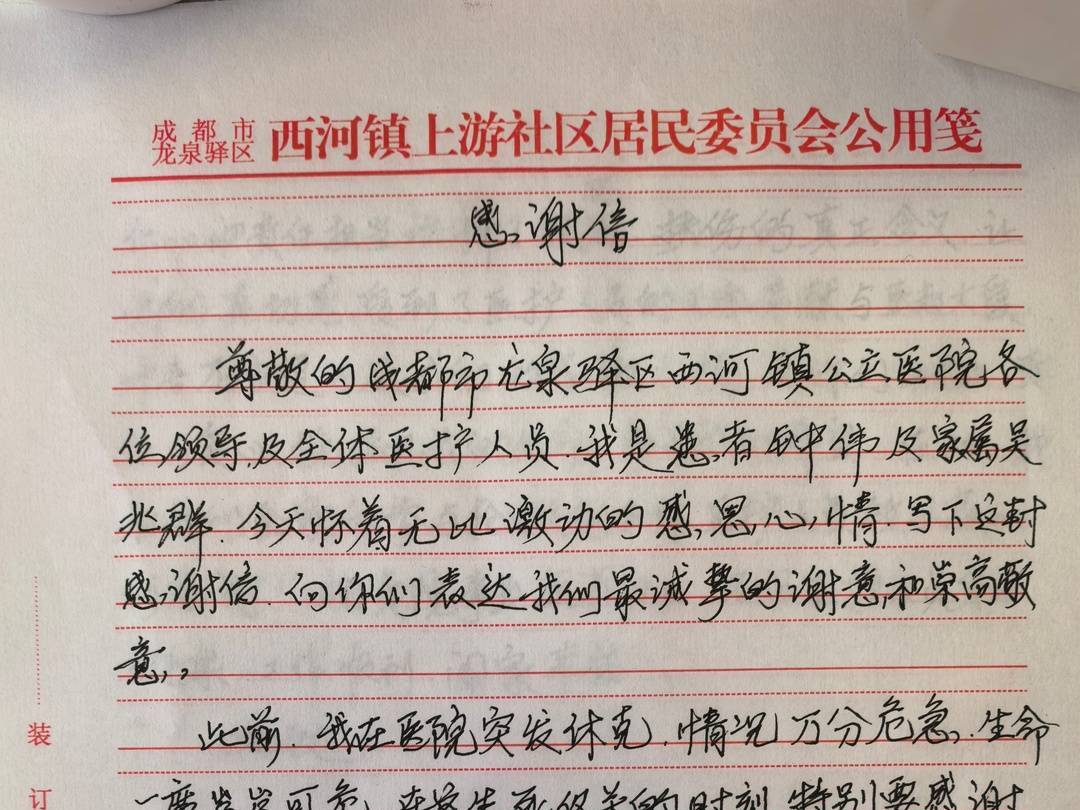 成都市
龙泉驿区 西河镇上游社区居民委员会公用笺
感谢信
尊敬的成都市龙泉驿区西河镇公立医院各
位领导及全体医护人员.我是患者钟伟及家属吴
兆群.今天怀着无比激动的感恩心情.写下这封
感谢信.向你们表达我们最诚挚的谢意和崇高敬
意。
此前.我在医院突发休克,情况万分危急.生命
一度岌岌可危,在这生死攸关的时刻,特别要感谢
装
订